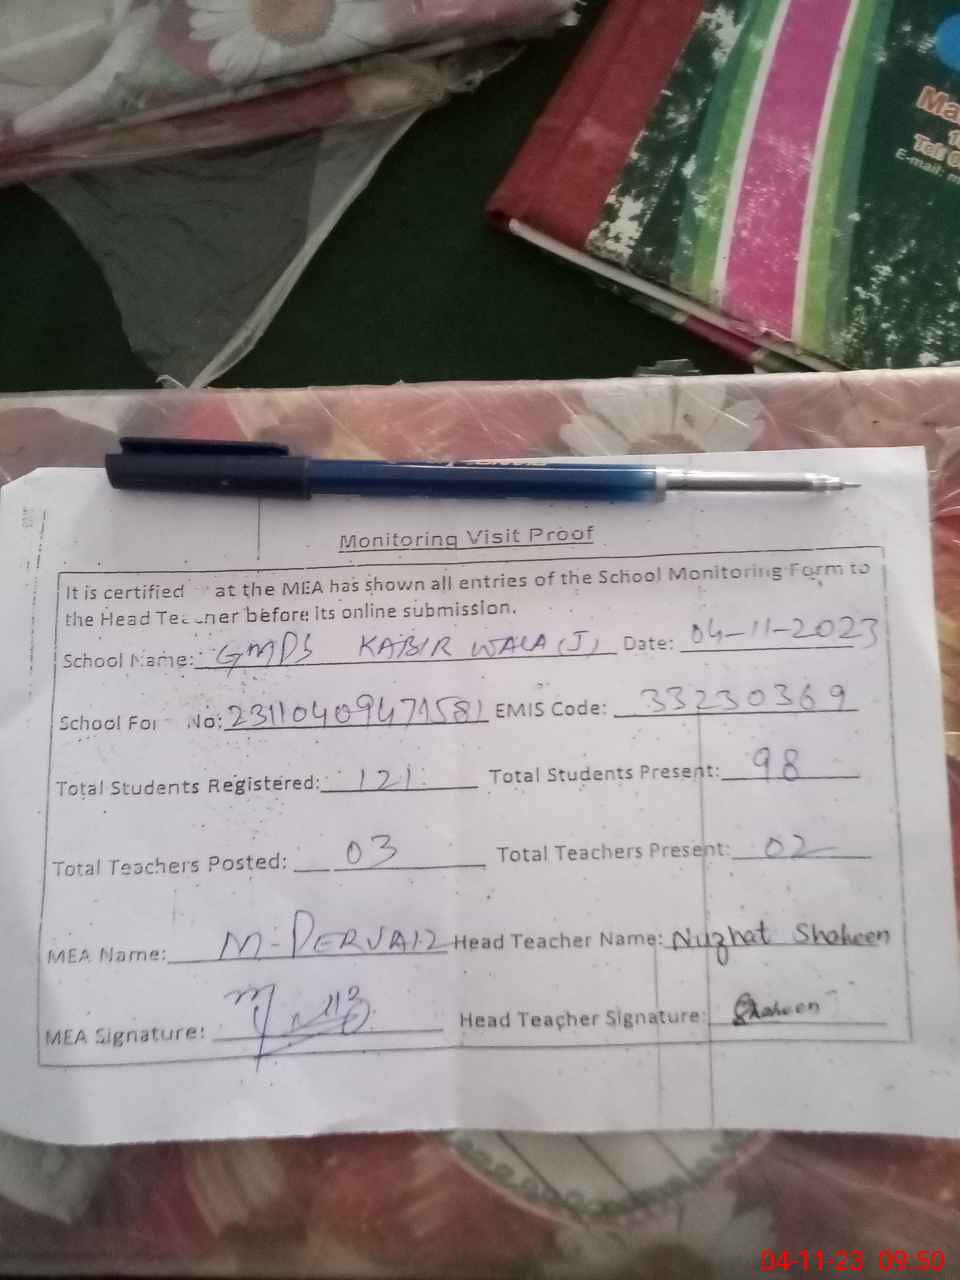 Ma
Tel: 0
E-mail: m
Monitoring Visit Proof
It is certified at the MEA has shown all entries of the School Monitoring Form to
the Head Teacher before its online submission.
School Name: GMPS KABIR WALA (J) Date: 04-11-2023
School For No: EMIS Code: 33230369
Total Students Registered: 121 Total Students Present: 98
Total Teachers Posted: 03 Total Teachers Present: 02
MEA Name: M. PERVAIZ Head Teacher Name: Nuzhat Shaheen
MEA Signature: Head Teacher Signature: Shaheen
04-11-23 09:50